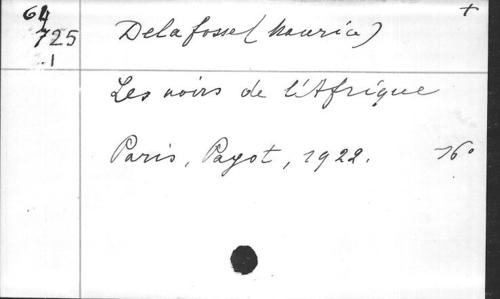 64
725
.1
Delafosse (Maurice)
+
Les noirs de l'Afrique
Paris, Payot, 1922. 16°